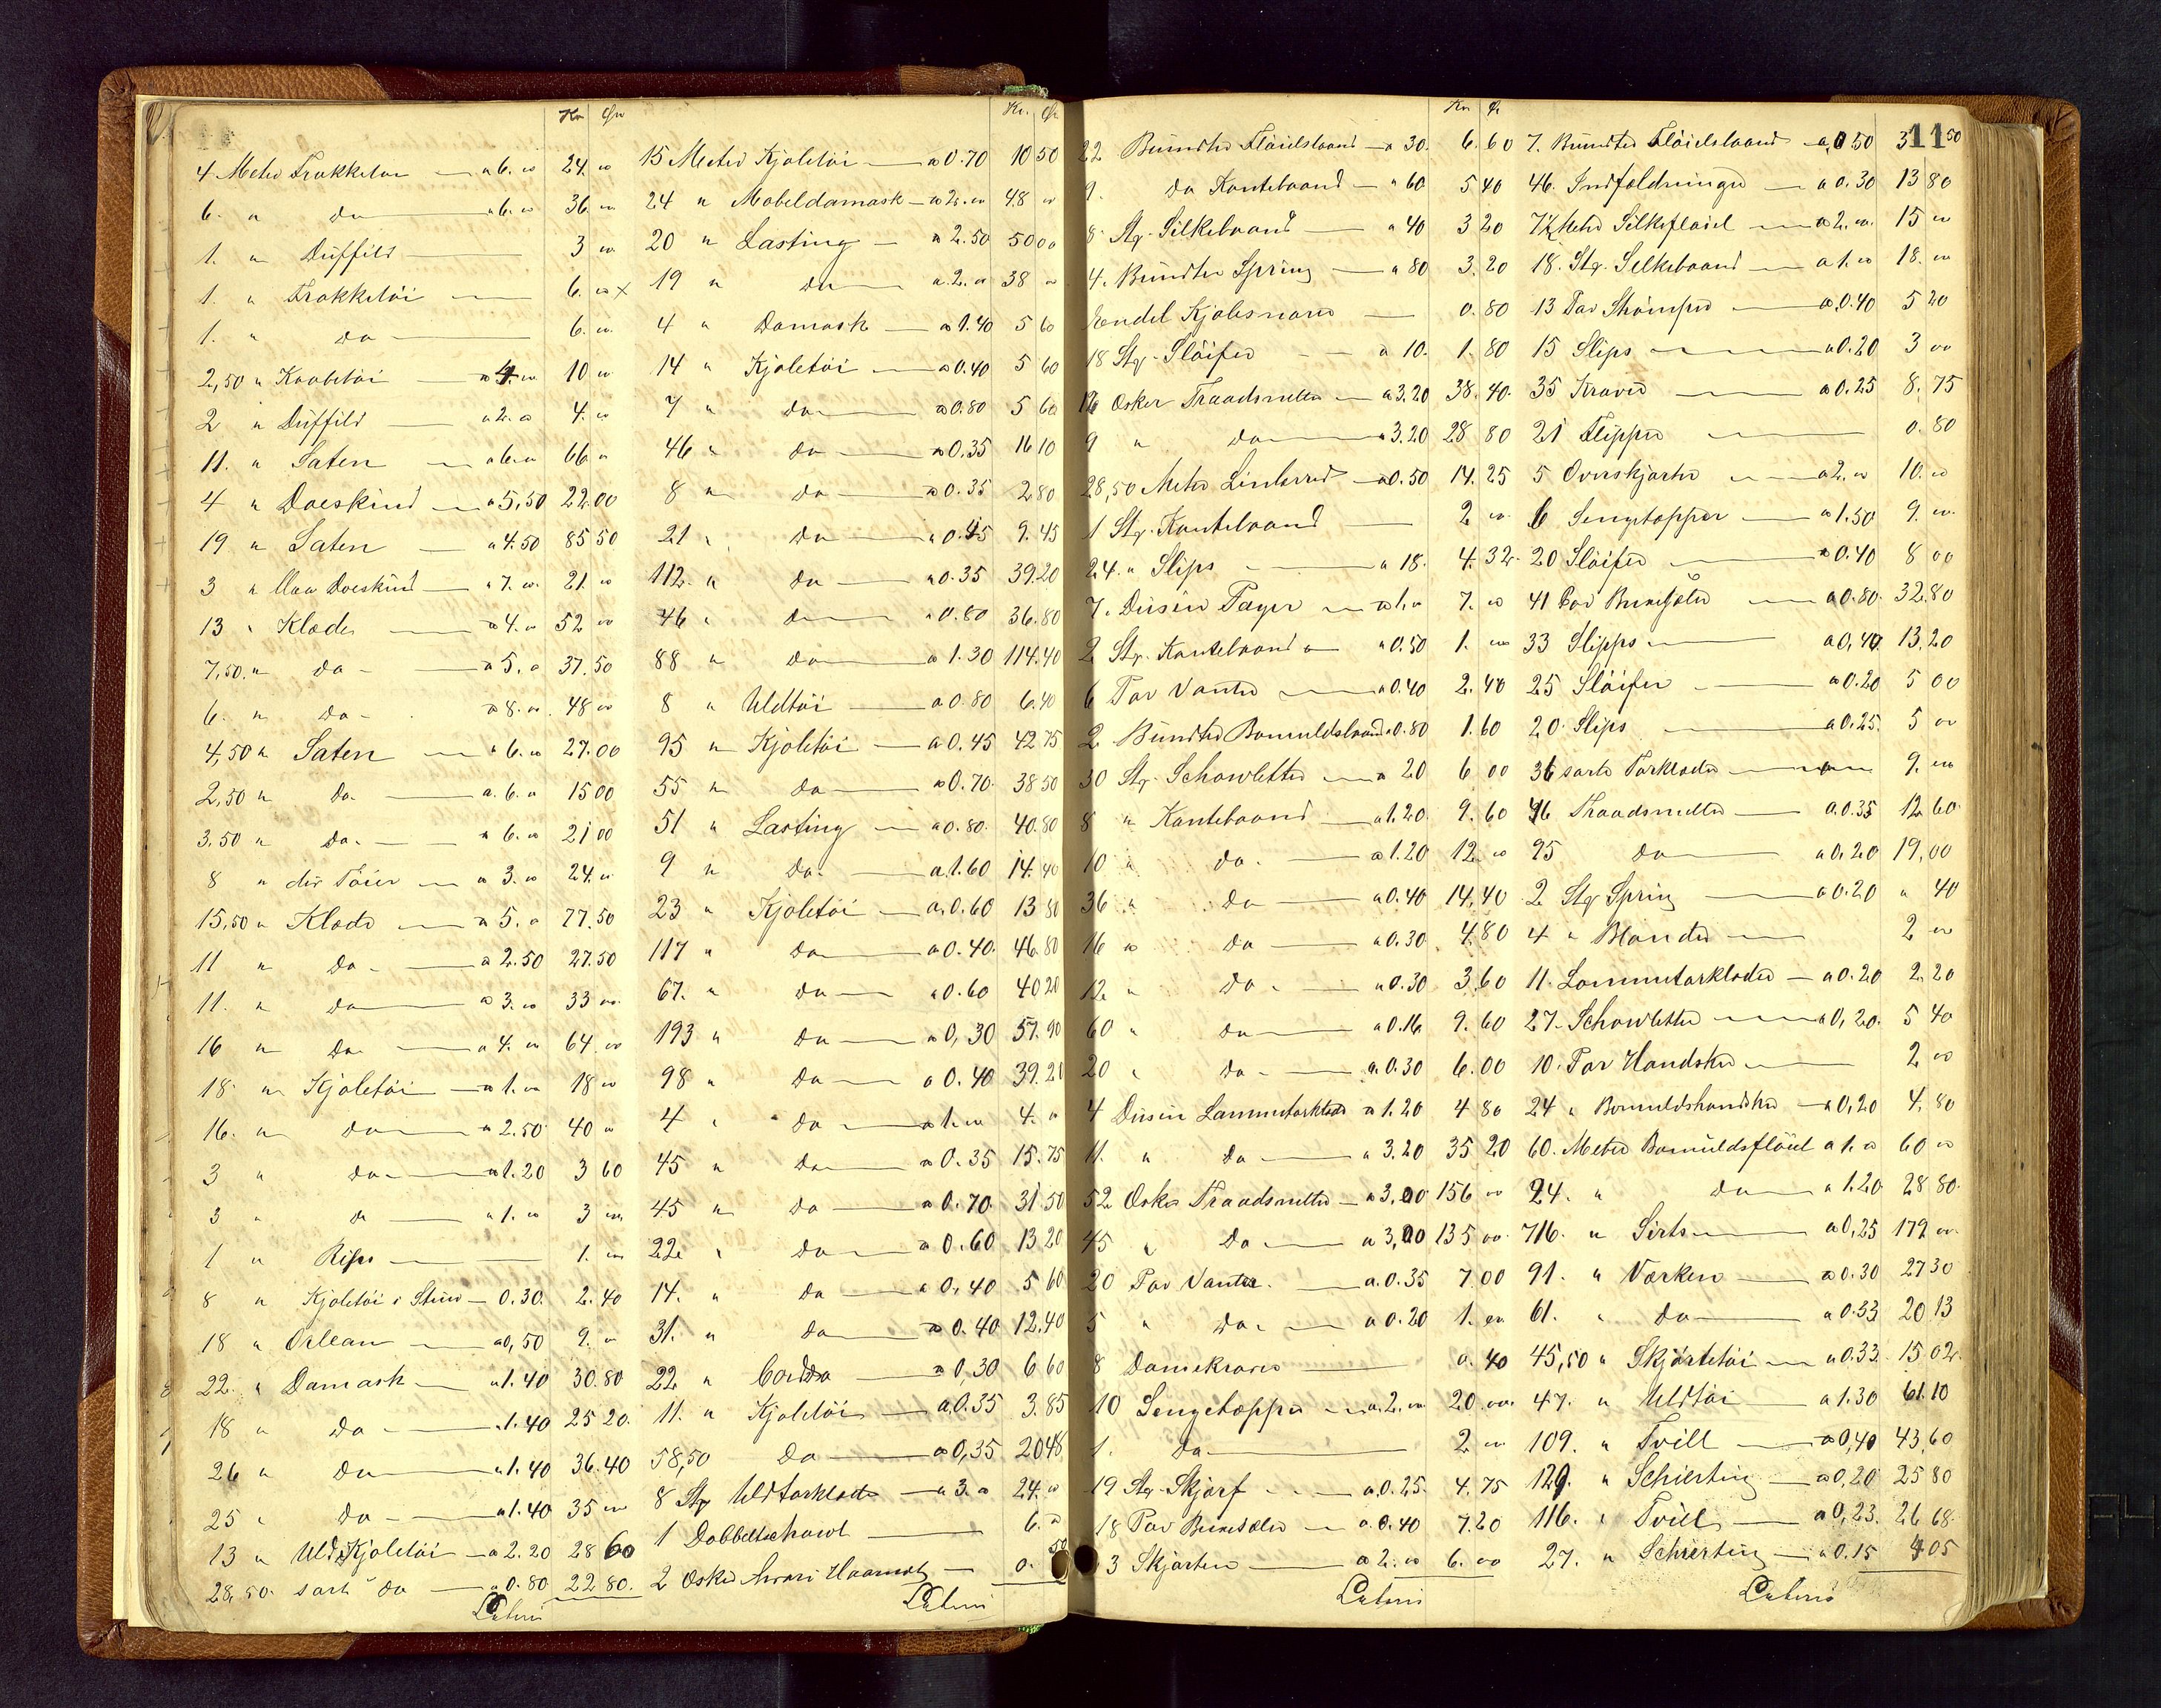 Kr Ør
4 Meter Frakketøi a 6. 00 24. 00
6. " do a 6. 00 36. 00
1. " Düffild 3 00
1. " Frakketøi 6. 00 x
1. " do 6. 00
2,50 " Kaabetøi a 4. 00 10 00
2 " Düffild a 2. 00 4. 00
11. " Saten a 6. 00 66 00
4 " Doeskind a 5,50 22.00
19 " Saten a 4.50 85 50
3 " Doeskind a 7. 00 21. 00
13 " Klæde a 4. 00 52 00
7,50 " do a 5. 00 37.50
6. " do a 8. 00 48 00
4,50 " Saten a 6. 00 27.00
2,50 " do a 6. 00 15 00
3.50 " do a 6. 00 21 00
8 " div Tøier a 3. 00 24. 00
15,50 " Klæde a 5. 00 77.50
11 " do a 2.50 27.50
11. " do a 3. 00 33 00
16 " do a 4. 00 64 00
18 " Kjoletøi a 1. 00 18 00
16. " do a 2.50 40 00
3 " do a 1.20 3 60
3 " do a 1. 00 3 00
1 " Rips 1. 00
8 " Kjoletøi i Stuv 0.30. 2.40
18 " Orlean a 0,50 9. 00
22. " Damask a 1.40 30.80
18 " do a 1.40 25 20.
26 " do a 1.40 36.40
25 " do a 1.40 35 00
13 " Uld Kjoletøi a 2.20 28 60
28,50. sort do a 0.80 22 80.
Latus
Kr. Ør
15 Meter Kjoletøi a 0.70 10 50
24 " Møbeldamask a 2. 00 48 00
20 " Lasting a 2.50 50 00
19 " do a 2. 00 38 00
4 " Damask a 1.40 5 60
14 " Kjoletøi a 0.40 5 60
7 " do a 0.80 5 60
46 " do a 0.35 16 10
8 " do a 0.35 2 80
21 " do a 0.45 9.45
112. " do a 0.35 39.20
46 " do a 0.80 36.80
88 " do a 1.30 114.40
8 " Uldtøi a 0.80 6.40
95 " Kjoletøi a 0.45 42 75
55 " do a 0.70. 38 50
51 " Lasting a 0.80. 40.80
9 " do a 1.60 14.40
23 " Kjoletøi a 0.60 13 80
117 " do a 0.40. 46.80
67. " do a 0.60 40 20
193 " do a 0,30 57.90
98 " do a 0.40 39.20
4 " do a 1. 00 4. 00
45 " do a 0.35 15.75
45 " do a 0.70. 31.50
22 " do a 0.60 13 20
14. " do a 0,40 5 60
31. " do a 0.40 12.40
22 " Cordda a 0,30 6 60
11. " Kjoletøi a 0.35 3.85
58,50 do a 0,35 20 48
8 Stg Uldtørklæder a 3. 00 24. 00
1 Dobbeltschawl 6. 00
2 Æsker 0. 50
Latus
Kr Ør
22 Bundter Fløielsbaand a 30. 6.60
9. do Kantebaand a 60 5 40
8 Stg. Silkebaand a 40 3 20
4. Bundter Spring a 80 3.20
Endel Kjolesnore 0.80
18 Stg. Sløifer a 10. 1.80
12 Æsker Traadsneller a 3.20 38.40.
9 " do a 3.20 28 80
28,50 Meter Linlerred a 0.50 14.25
1 Stg. Kantebaand 2 00
24. " Slips a 18. 4.32
7. Dusin Tager a 1. 00 7. 00
2 Stg. Kantebaand a 0.50 1. 00
6 Par Vanter a 0.40 2.40
2 Bundter Bomuldsbaand a 0.80 1.60
30 Stg. Schawletter a 20 6 00
8 " Kantebaand a 1.20. 9.60
10 " do. a 1.20 12 00
36 " do a 0.40 14,40
16 " do a 0.30 4.80
12 " do a 0.30 3.60
60 " do a 0.16 9.60
20 " do a 0.30 6.00
4 Dusin Lommetørklæder a 1.20 4 80
11. " do a 3.20 35 20
52 Æsker Traadsneller a 3,00 156 00
45 " do a 3,00 135 00
20 Par Vanter. a 0.35 7.00
5 " do a 0.20 1. 00
8 Damekraver 0. 40
10 Sengetæpper a 2. 00 20. 00
1. do 2 00
19 Stg. Skjærf a 0.25. 4.75
18 Par Buxeseler a 0.40 7.20
3 Skjorter a 2. 00 6. 00
Latus
11
7. Bundter Fløielsbaand a 0.50 3 50
46. Indfældninger a 0.30 13 80
7½ Meter Silkefløiel a 2. 00 15 00
18. Stg. Silkebaand a 1. 00 18. 00
13 Par Strømper a 0.40 5 20
15 Slips a 0.20 3 00
35 Kraver a 0.25 8.75
21 Flipper 0.80
5 Overskjorter a 2. 00 10. 00
6 Sengetæpper a 1.50 9. 00
20 Sløifer a 0.40 8 00
41 Par Buxeseler a 0.80. 32.80
33 Slipps a 0,40. 13,20
25 Sløifer a 0.20 5 00
20. Slips a 0.25. 5 00
36 sorte Tørklæder 9. 00
36 Traadsneller a 0.35 12 60
95 do a 0,20 19,00
2 Stg Spring a 0.20 " 40
4 " Blonder 2 00
11. Lommetørklæder a 0.20 2.20
27. Schawletter a 0,20. 5 40
10. Par Handsker 2 00
24 " Bomuldshandsker a 0,20 4,80
60. Meter Bomuldsfløiel a 1. 00 60 00
24. " do a 1.20 28 80.
716. " Sirts a 0,25 179 00
91. " Værken a 0.30 27 30
61. " do a 0.33 20 13
45,50 " Skjørtetøi a 0.33. 15 02.
47. " Uldtøi a 1.30 61.10
109. " Tvill a 0,40 43,60
129. " Schirting a 0,20 25 80
116. " Tvill a 0,23. 26 68.
27. " Schirting a 0.15 4 05
Latus